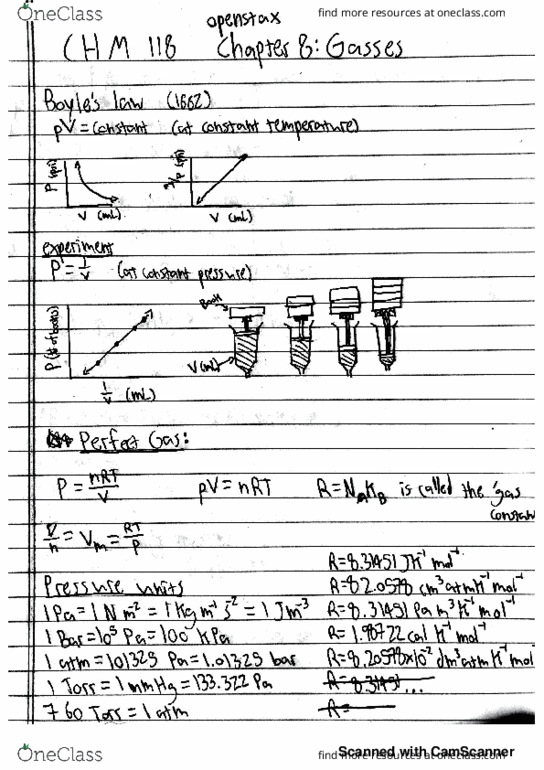 OneClass
find more resources at oneclass.com
openstax
CHM 118 Chapter 8: Gasses
Boyle's law (1662)
pV = constant (at constant temperature)
P (psi)
V (mL)
1/P (psi)
V (mL)
experiment
P = 1/V (at constant pressure)
P (# of books)
1/V (mL)
Book
V (mL)
Perfect Gas:
P = nRT/V pV = nRT R = NAKB is called the 'gas
constant
V/n = Vm = RT/P
R = 8.31451 JK⁻¹ mol⁻¹
Pressure units
R = 82.0578 cm³ atm K⁻¹ mol⁻¹
1 Pa = 1 N m⁻² = 1 Kg m⁻¹ s⁻² = 1 J m⁻³
R = 8.31451 Pa m³ K⁻¹ mol⁻¹
1 Bar = 10⁵ Pa = 100 kPa
R = 1.98722 cal K⁻¹ mol⁻¹
1 atm = 101325 Pa = 1.01325 bar
R = 8.20578x10⁻² dm³ atm K⁻¹ mol
1 Torr = 1 mmHg = 133.322 Pa
R = 8.31451...
760 Torr = 1 atm
R =
OneClass
find more resources at oneclass.com
Scanned with CamScanner